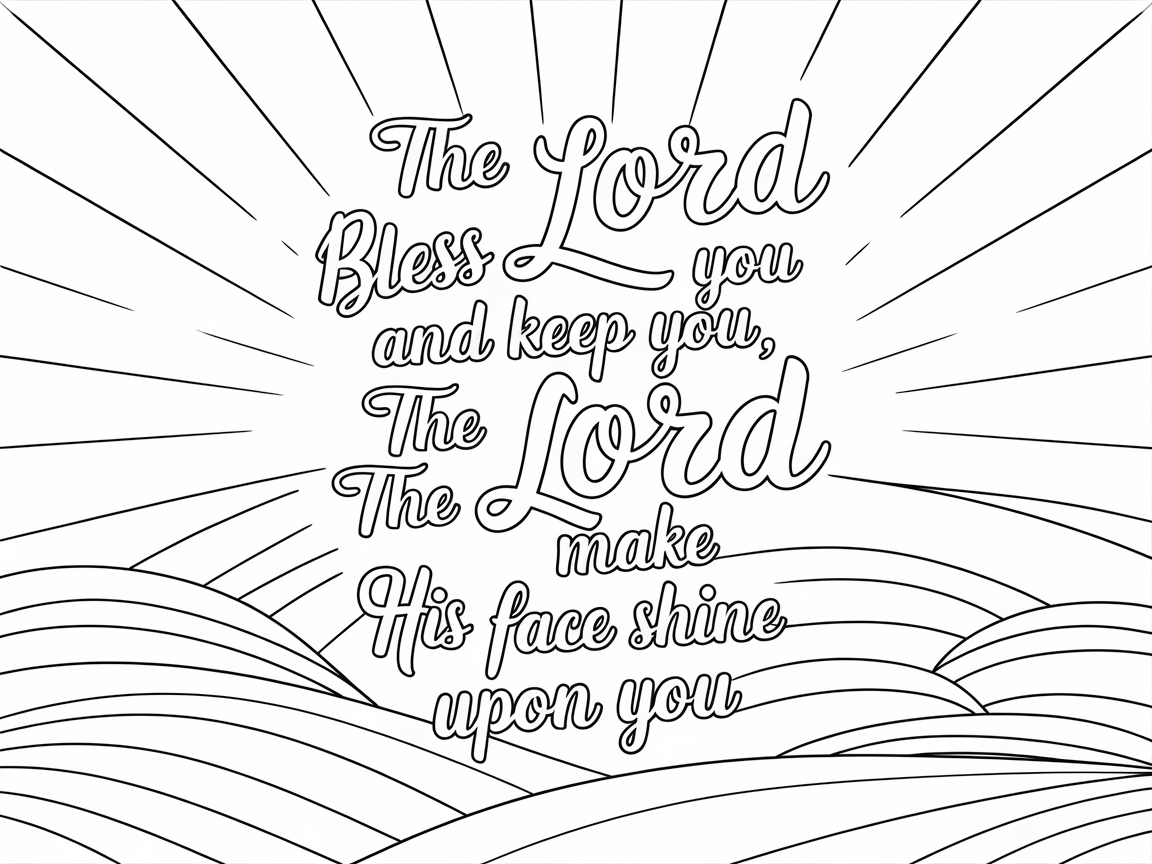 The Lord
Bless you
and keep you,
The Lord
The
make
His face shine
upon you